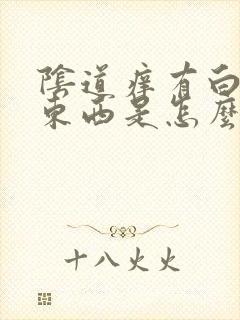 陰道痒有白
東西是怎麼
十八火火